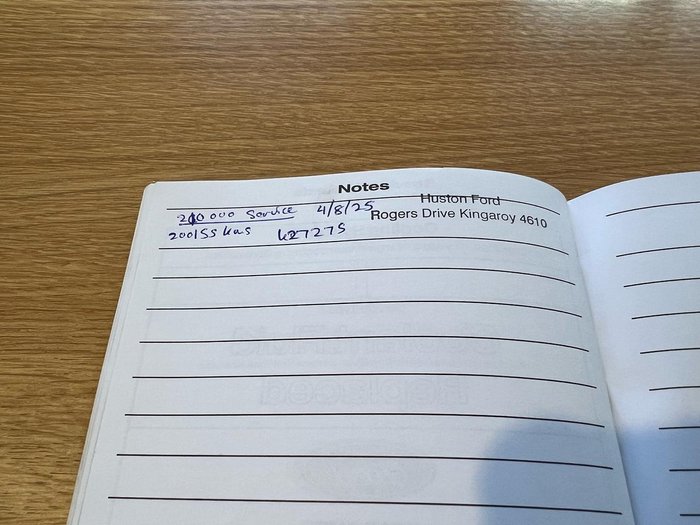 Notes
Huston Ford
Rogers Drive Kingaroy 4610
000 Service 4/8/25
200155 kms